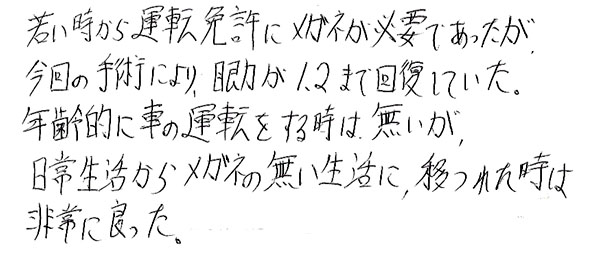 若い時から運転免許にメガネが必要であったが、
今回の手術により、眼力が1.2まで回復していた。
年齢的に車の運転をする時は無いが、
日常生活からメガネの無い生活に、移つれた時は
非常に良った。